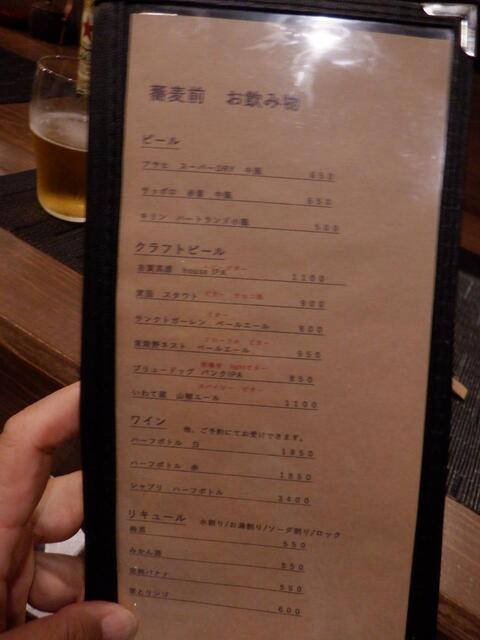 蕎麦前 お飲み物
ビール
アサヒ スーパーDRY 中瓶 650
サッポロ 赤星 中瓶 650
キリン ハートランド小瓶 500
クラフトビール
ビター
志賀高原 house IPA 1100
ビター
箕面 スタウト 900
ビター
サンクトガーレン ペールエール 800
フローラル ビター
常陸野ネスト ペールエール 950
lightビター
ブリュードッグ パンクIPA 850
スパイシー ビター
いわて蔵 山椒エール 1100
ワイン 他、ご予約にてお受けできます。
ハーフボトル 白 1850
ハーフボトル 赤 1850
シャブリ ハーフボトル 3400
リキュール 水割り/お湯割り/ソーダ割り/ロック
梅酒 550
みかん酒 550
完熟バナナ 550
600